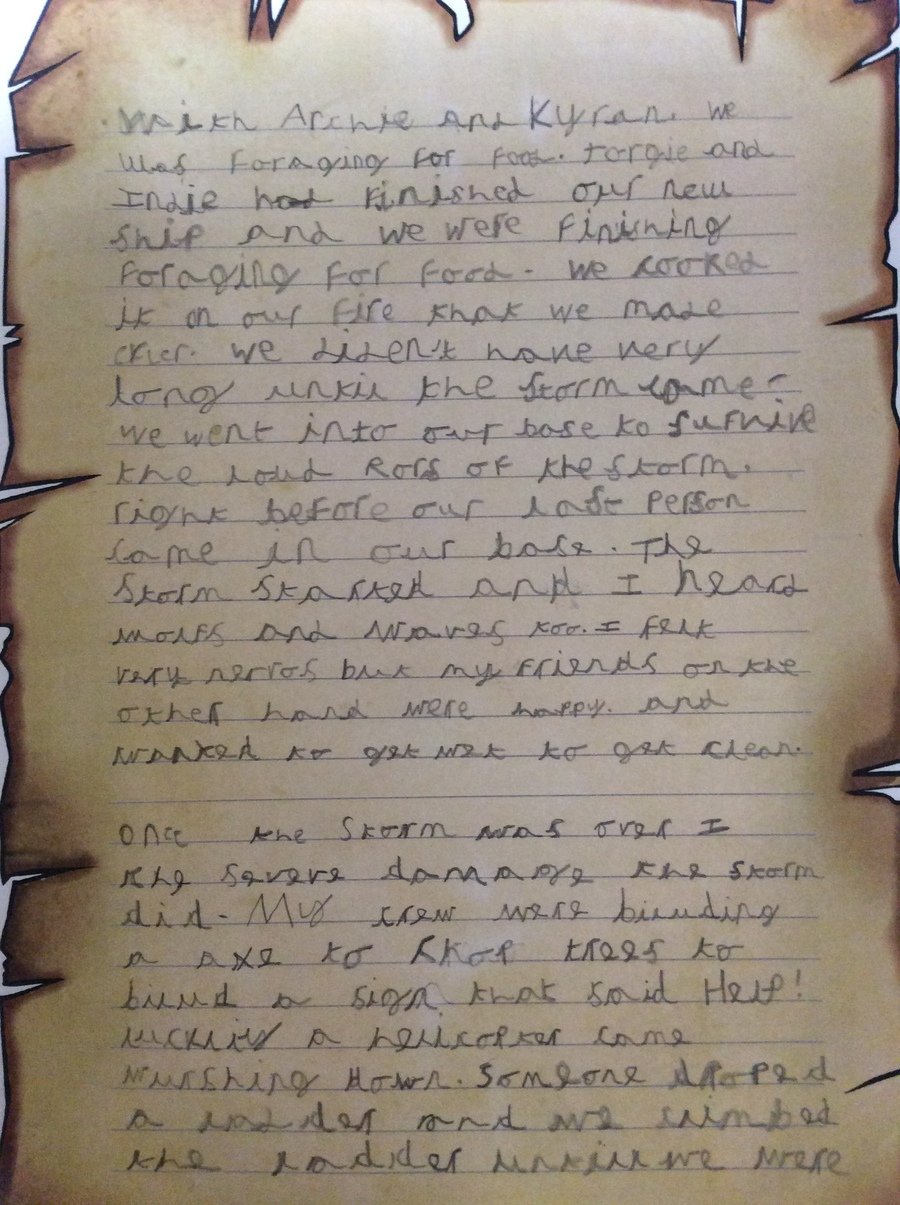 with Archie and Kyran. we
was foraging for food. Forgie and
Indie had finished our new
ship and we were finishing
foraging for food. we cooked
it on our fire that we made
we diden't have very
long until the storm came.
we went into our base to survive
the loud rors of the storm.
right before our last person
came in our base. The
storm started and I heard
and waves too. I felt
very nervos but my friends on the
other hand were happy. and
wanted to get wet to get clean.
once the storm was over I
the severe dammage the storm
did. My crew were biulding
a axe to chop trees to
biuld a sign that said Help!
luckily a helicopter came
down. Someone droped
a ladder and we climbed
the ladder untill we were